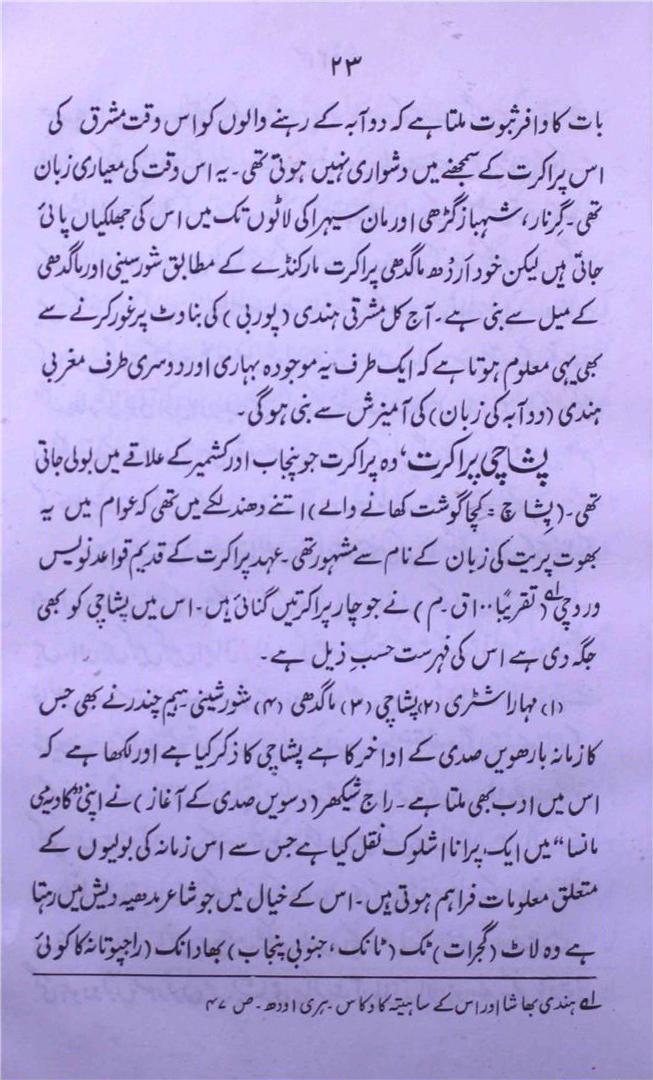 ۲۳
بات کا وافر ثبوت ملتا ہے کہ دوآبہ کے رہنے والوں کو اس وقت مشرق کی
اس پراکرت کے سمجھنے میں دشواری نہیں ہوتی تھی۔ یہ اس وقت کی معیاری زبان
تھی۔ گرنار، شہباز گڑھی اور مان سیہرا کی لاٹوں تک میں اس کی جھلکیاں پائی
جاتی ہیں لیکن خود اَردْھ ماگدھی پراکرت مارکنڈے کے مطابق شورسینی اور ماگدھی
کے میل سے بنی ہے۔ آج کل مشرقی ہندی (پوربی) کی بناوٹ پر غور کرنے سے
بھی یہی معلوم ہوتا ہے کہ ایک طرف یہ موجودہ بہاری اور دوسری طرف مغربی
ہندی (دوآبہ کی زبان) کی آمیزش سے بنی ہوگی۔
پشاچی پراکرت، وہ پراکرت جو پنجاب اور کشمیر کے علاقے میں بولی جاتی
تھی۔ (پشاچ = کچا گوشت کھانے والے) اتنے دھندلکے میں تھی کہ عوام میں یہ
بھوت پریت کی زبان کے نام سے مشہور تھی۔ عہد پراکرت کے قدیم قواعد نویس
وردوچی لے (تقریباً ۱۰۰ ق۔م) نے جو چار پراکرتیں گنائی ہیں۔ اس میں پشاچی کو بھی
جگہ دی ہے اس کی فہرست حسبِ ذیل ہے۔
(۱) مہاراشٹری (۲) پشاچی (۳) ماگدھی (۴) شورشینی۔ ہیم چندر نے بھی جس
کا زمانہ بارھویں صدی کے اواخر کا ہے پشاچی کا ذکر کیا ہے اور لکھا ہے کہ
اس میں ادب بھی ملتا ہے۔ راج شیکھر (دسویں صدی کے آغاز) نے اپنی ”کادیہ می
مانسا“ میں ایک پرانا اشلوک نقل کیا ہے جس سے اس زمانہ کی بولیوں کے
متعلق معلومات فراہم ہوتی ہیں۔ اس کے خیال میں جو شاعر مدھیہ دیش میں رہتا
ہے وہ لاٹ (گجرات) ٹک (ٹانک، جنوبی پنجاب) بھادانک (راجپوتانہ کا کوئی
لے ہندی بھاشا اور اس کے ساہیتہ کا وکاس۔ ہری اودھ۔ ص ۴۷